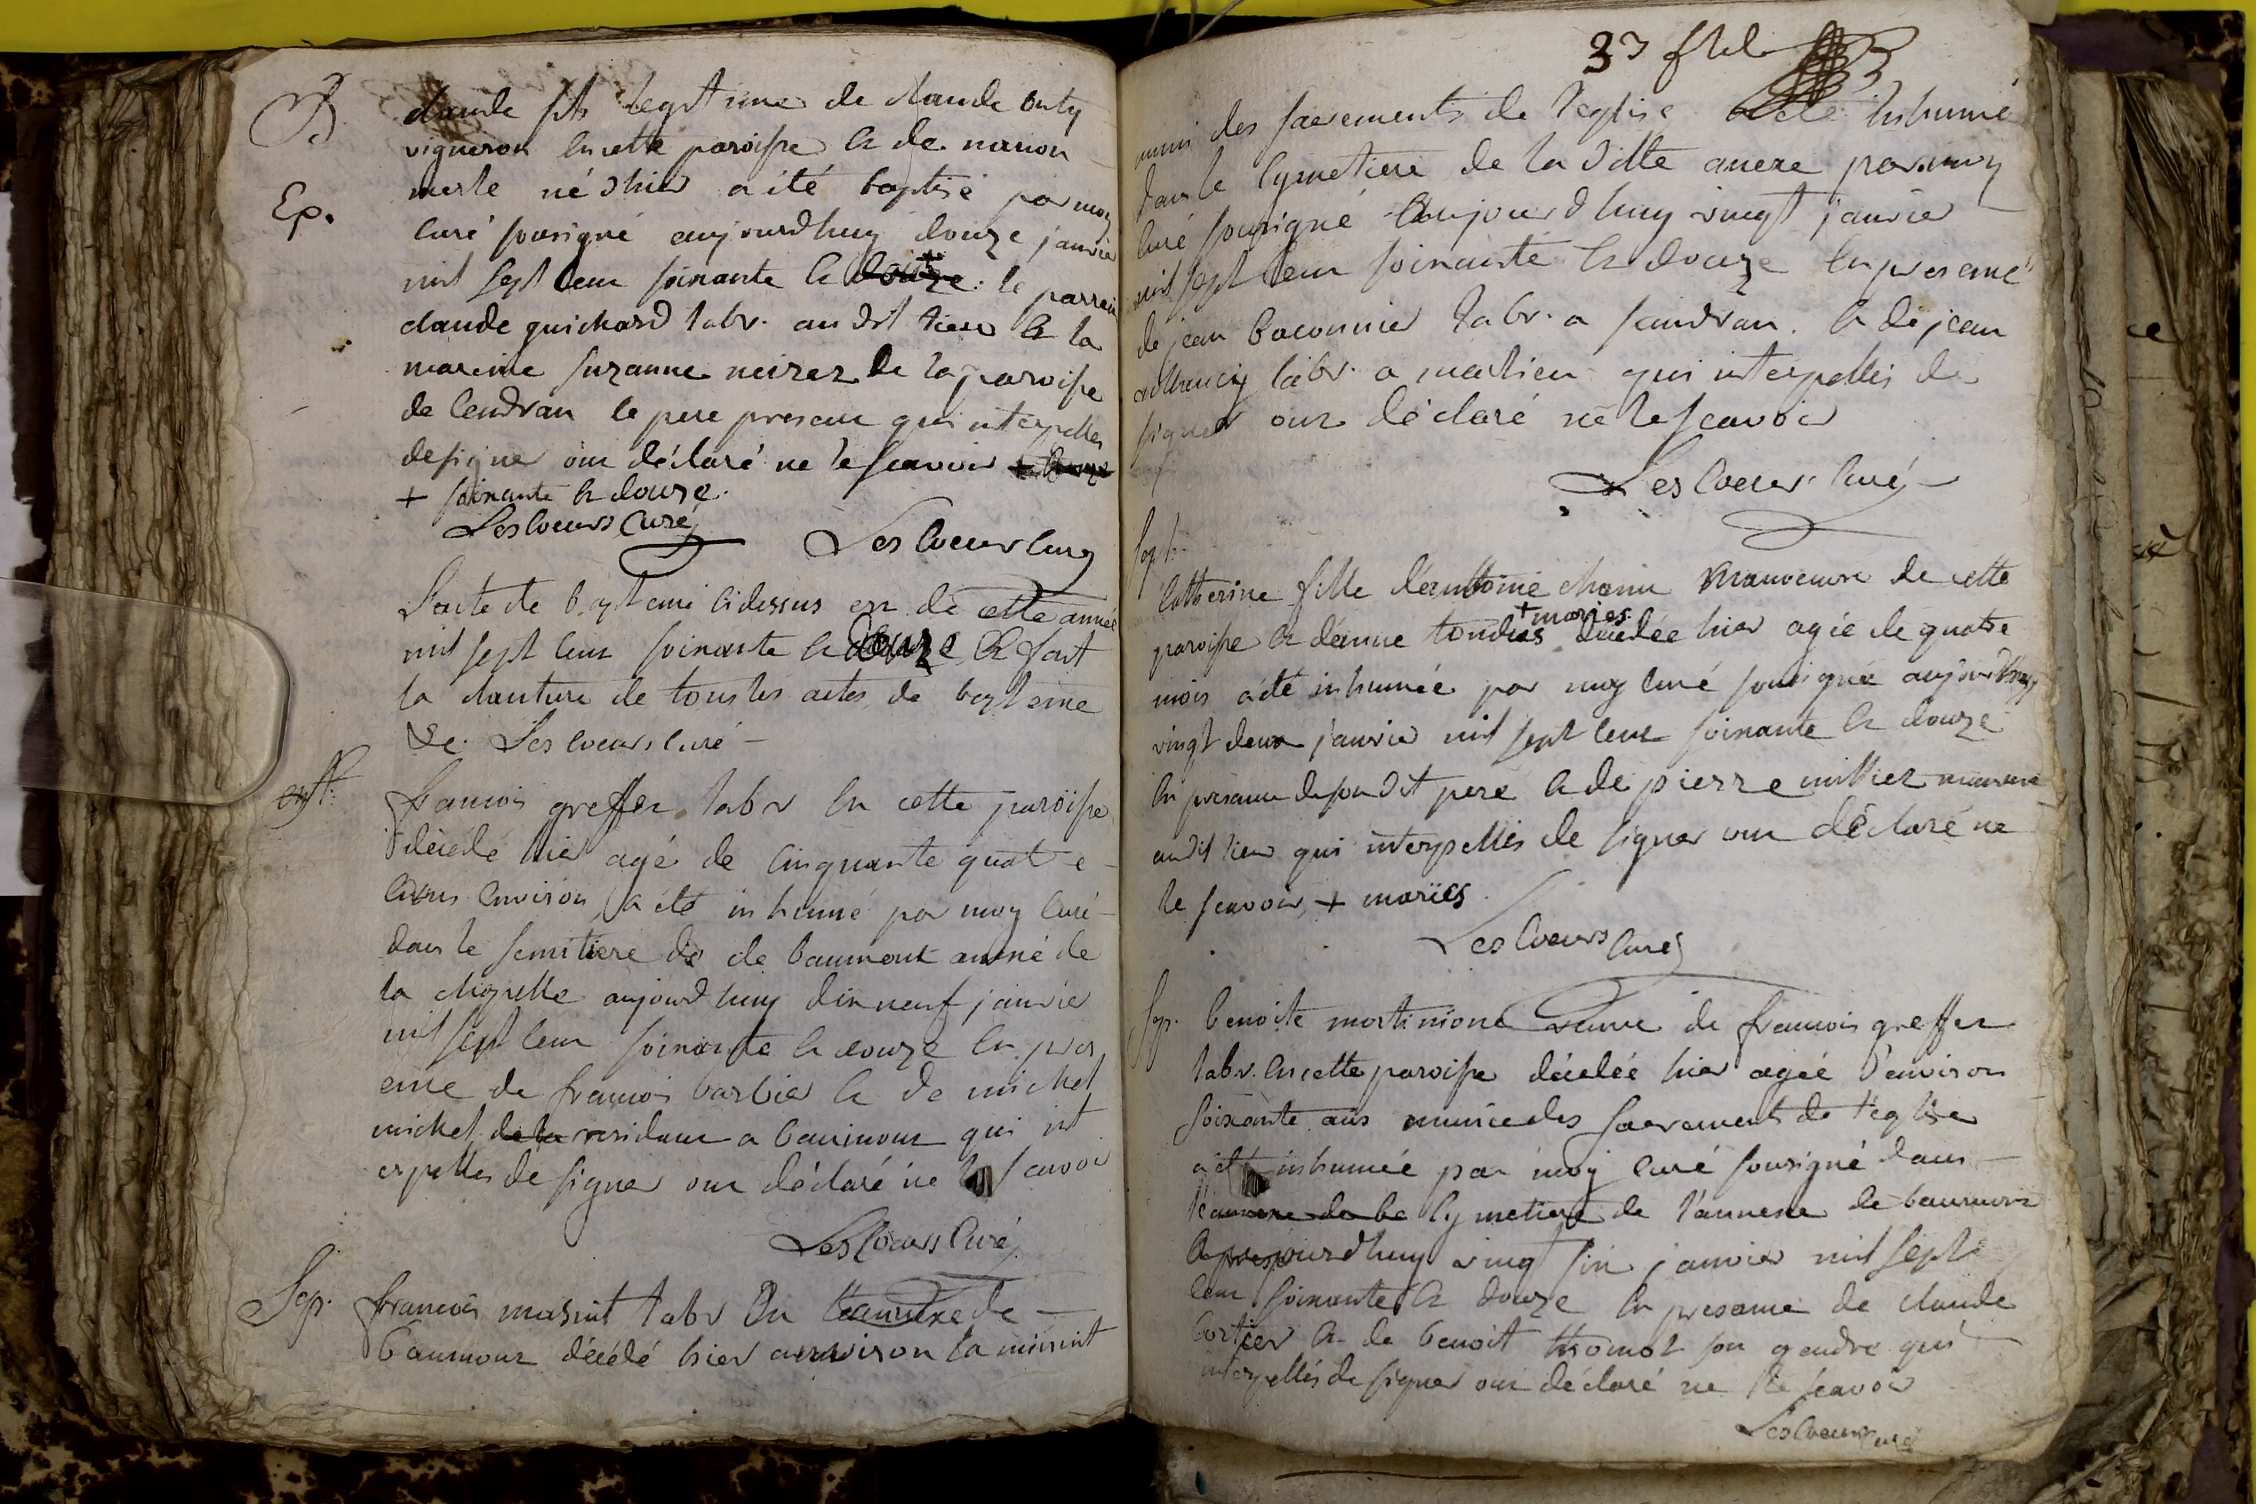 B
claude fils legitime de claude
vigneron en cette paroisse & de manon
merle né d'hier a été baptisé par moy
Ep.
curé sousigné aujourdhuy douze janvier
mil sept cent soixante & douze + le parrain
claude guichard labr. au dit lieu & la
mareine suzanne neirer de la paroisse
de Cendran le pere present qui interpellés
de signer ont déclaré ne le scavoir
+ soixante & douze.
Lescoeurs Curé
Lescoeurs Curé
L'acte de bapteme cidessus est de cette année
mil sept cent soixante & douze & fait
la clauture de tous les actes de bapteme
&c. Lescoeurs curé
enft.
francois greffer labr en cette paroisse
décédé hier agé de cinquante quatre
ans environ a été inhumé par moy curé
dans le semitiere de de baumont annexe de
la chapelle aujourdhuy dix neuf janvier
mil sept cent soixante & douze en pres
ence de francois barbier & de michel
michel de la residant a baumont qui int
erpellés de signer ont déclaré ne le scavoir
Lescoeurs Curé
Sep. francois masint labr en l'annexe de
baumont décédé hier a environ la minuit
33
muni des sacrements de l'eglise a été inhumé
dans le cymetiere de la ditte anexe par moy
curé sousigné aujourdhuy vingt janvier
mil sept cent soixante & douze en presence
de jean baconnier labr. a sandran. & de jean
labr. a marlieu qui interpellés de
signer ont déclaré ne le scavoir
Lescoeurs Curé
Sep.
Catherine fille d'anthoine chanu manoeuvre de cette
paroisse & d'anne tondus + mariés décédée hier agée de quatre
mois a été inhumée par moy curé sousigné aujourdhuy
vingt deux janvier mil sept cent soixante & douze
en presence de son dit pere & de pierre millier manoeuvre
audit lieu qui interpellés de signer ont déclaré ne
le scavoir, + mariés
Lescoeurs Curé
Sep. benoite martinione veuve de francois greffer
labr. en cette paroisse décédée hier agée d'environ
soixante ans munie des sacrements de l'eglise
a été inhumée par moy curé sousigné dans
l'annexe de be cymetiere de l'annexe de baumont
aujourdhuy vingt six janvier mil sept
cent soixante & douze en presence de claude
cortier & de benoit thomot son gendre qui
interpellés de signer ont déclaré ne le scavoir
Lescoeurs curé